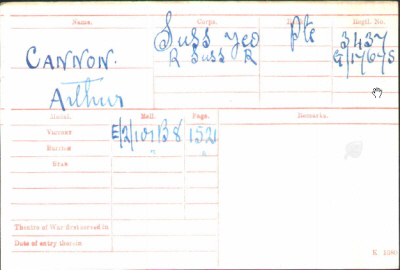 Name. Corps. Rank. Regtl. No.
CANNON. Suss Yeo Pte 3437
R Suss R G/17675
Arthur
Medal. Roll. Page. Remarks.
VICTORY E/2/101B8 1521
BRITISH "
STAR
Theatre of War first served in
Date of entry therein
K. 1380